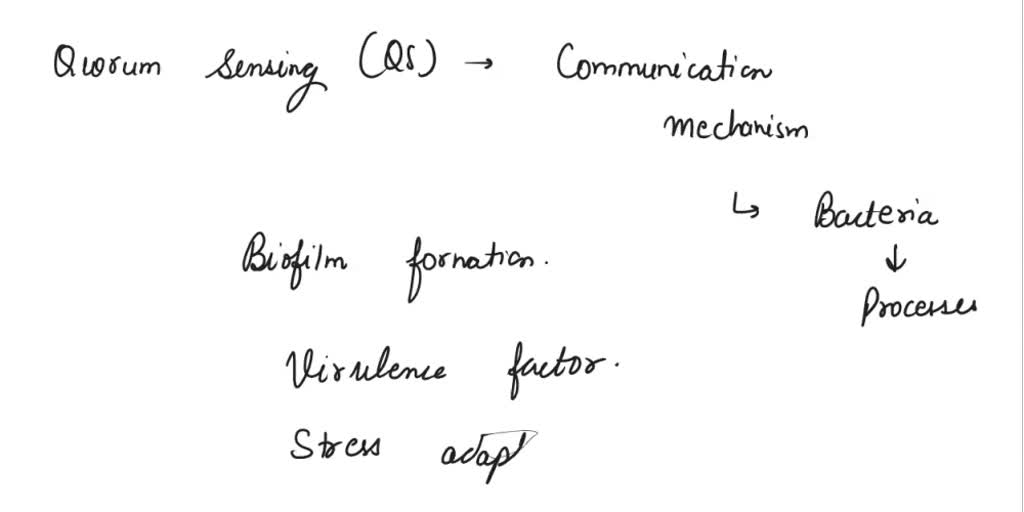 Quorum Sensing (QS) → Communication
mechanism
↳ Bacteria
↓
Processes
Biofilm fornation.
Virulence factor.
Stress adapt